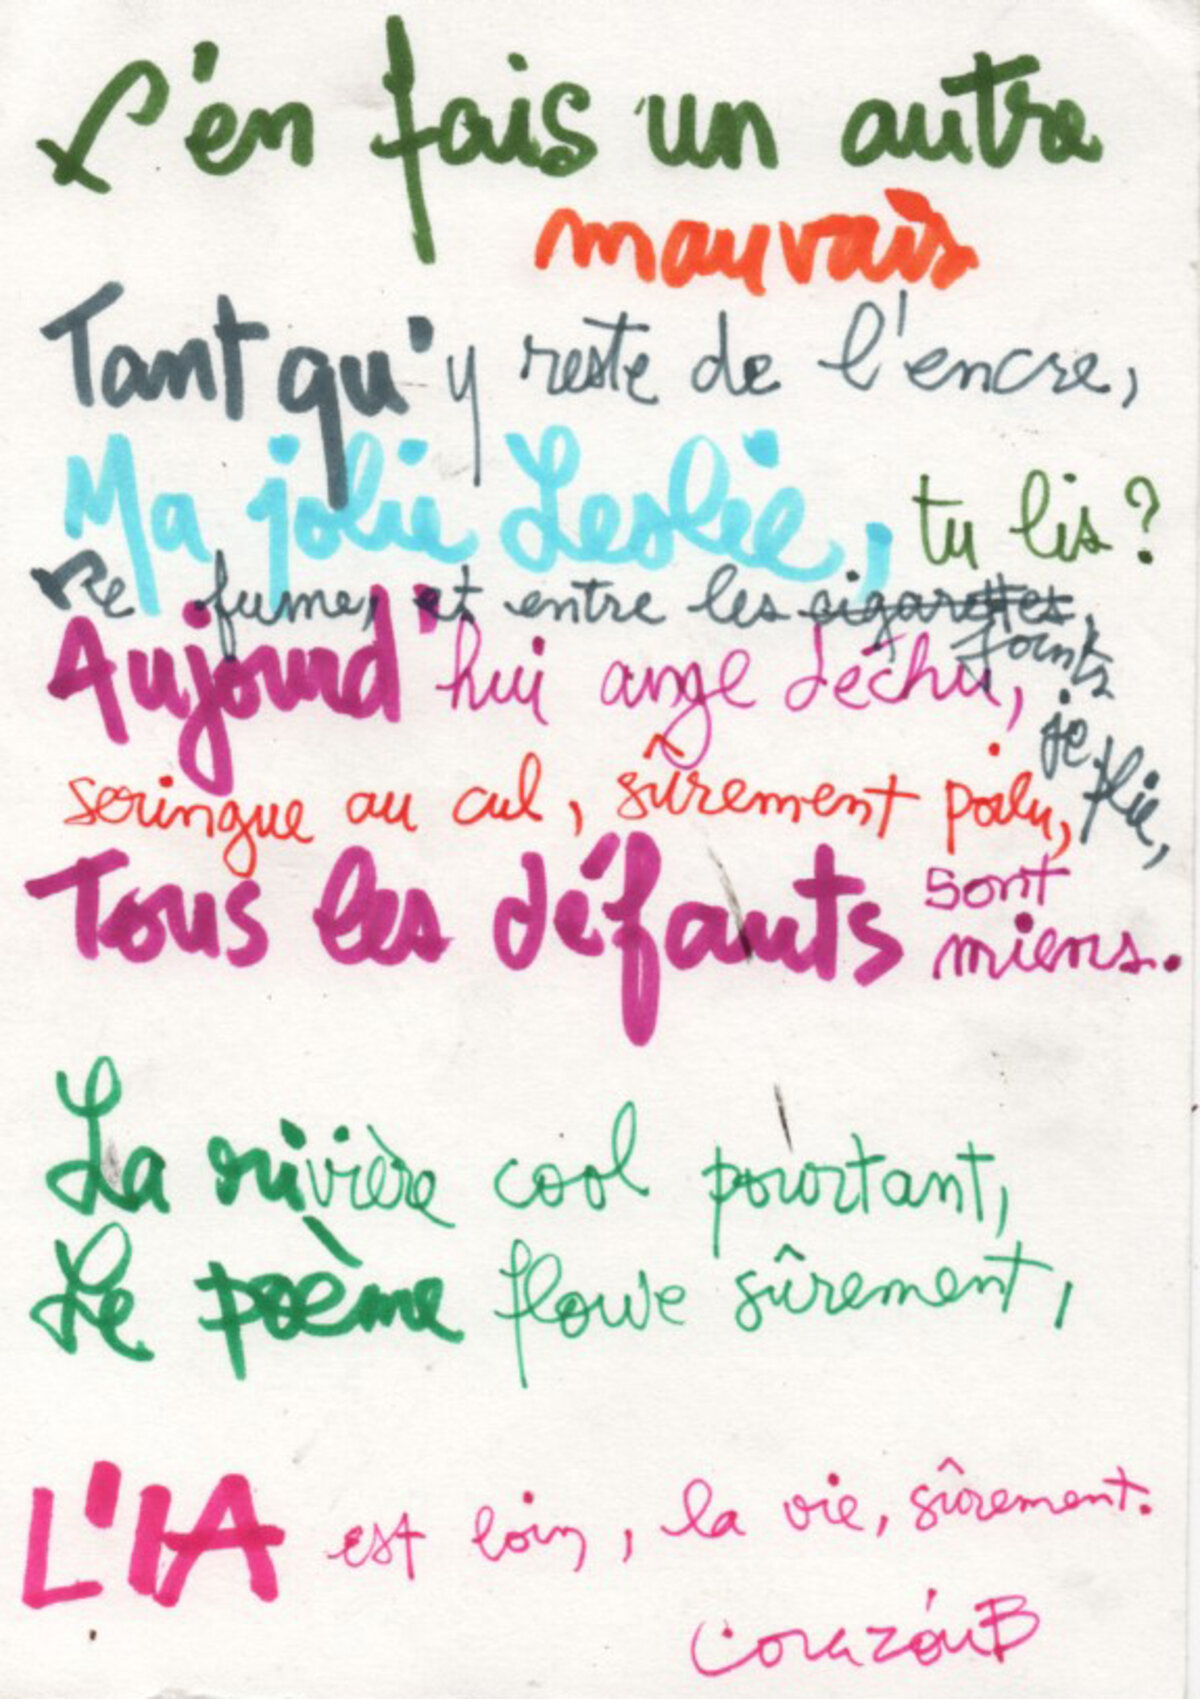 J'en fais un autre
mauvais
Tant qu'y reste de l'encre,
Ma jolie Leslie, tu lis ?
Je fume, et entre les cigarettes,
joints
je plie,
Aujourd'hui ange déchu,
seringue au cul, sûrement
Tous les défauts sont
miens.
La rivière cool pourtant,
Le poème flowe sûrement,
L'IA est loin, la vie, sûrement.
CorazónB